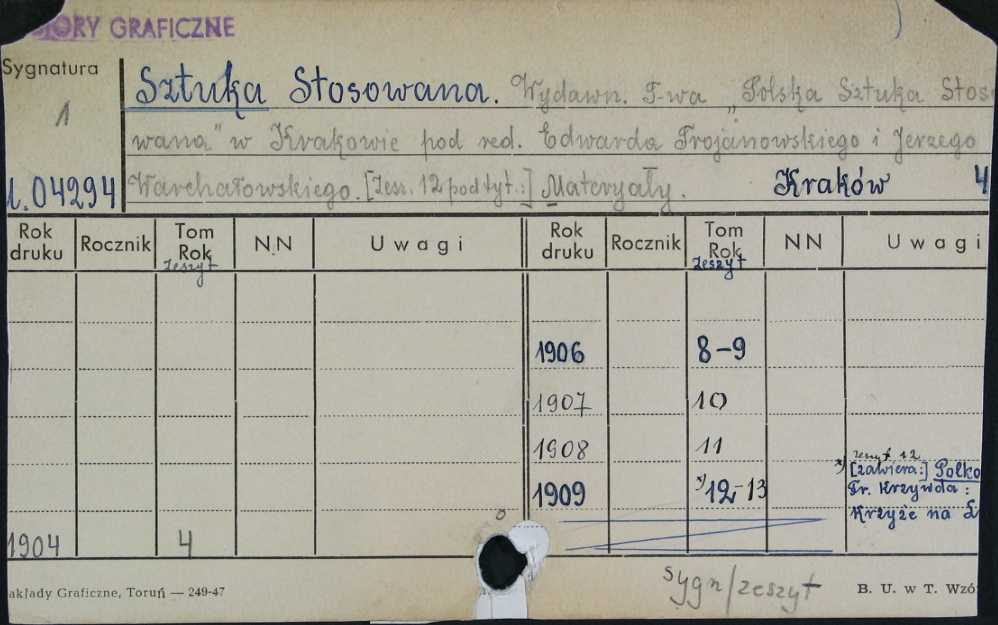 ZBIORY GRAFICZNE
Sygnatura
1
Sztuka Stosowana. Wydawn. T-wa „Polska Sztuka Stoso
wana" w Krakowie pod red. Edwarda Trojanowskiego i Jerzego
04294 Warchałowskiego. [Zesz. 12 pod tyt.:] Materyały. Kraków 4
Rok druku Rocznik Tom Rok zeszyt NN Uwagi Rok druku Rocznik Tom Rok zeszyt NN Uwagi
1906 8-9
1907 10
1908 11
zeszyt 12
1909 x) 12-13 x) [zawiera:] Polko
Fr. Krzywda:
Krzyże na
1904 4
akłady Graficzne, Toruń — 249-47
sygn/zeszyt
B. U. w T. Wzó